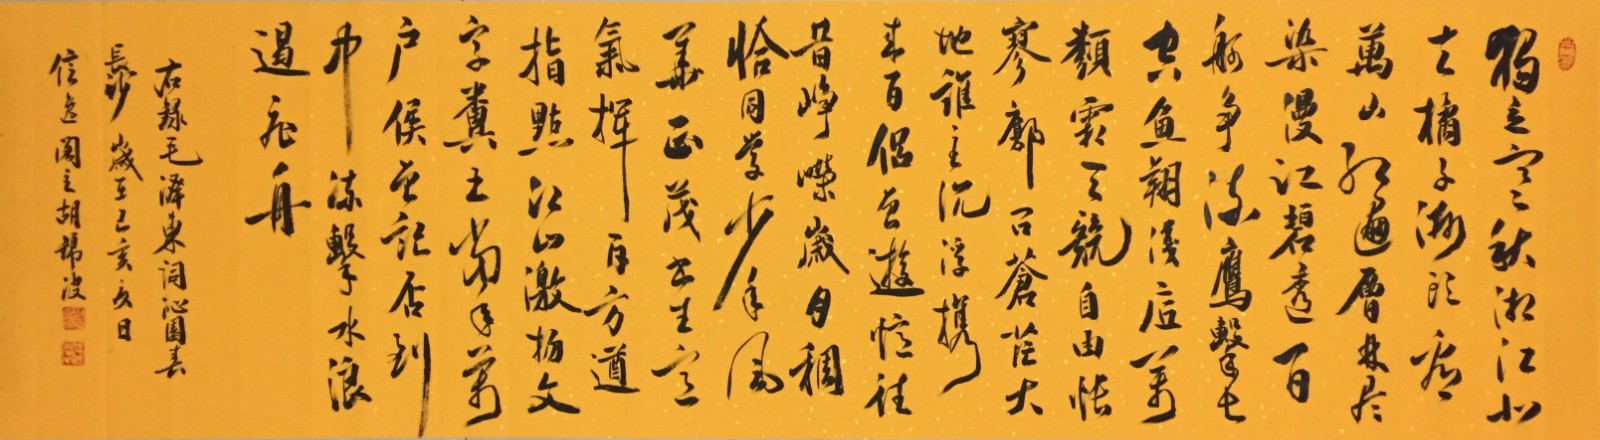 獨立寒秋湘江北
去橘子洲頭看
萬山紅遍層林盡
染漫江碧透百
舸爭流鷹擊長
空魚翔淺底萬
類霜天競自由悵
寥廓問蒼茫大
地誰主沉浮攜
來百侶曾遊憶往
昔崢嶸歲月稠
恰同學少年風
華正茂書生意
氣揮斥方遒
指點江山激揚文
字糞土當年萬
戶侯曾記否到
中流擊水浪
遏飛舟
右錄毛澤東詞沁園春
長沙歲在己亥日
信閣主胡波